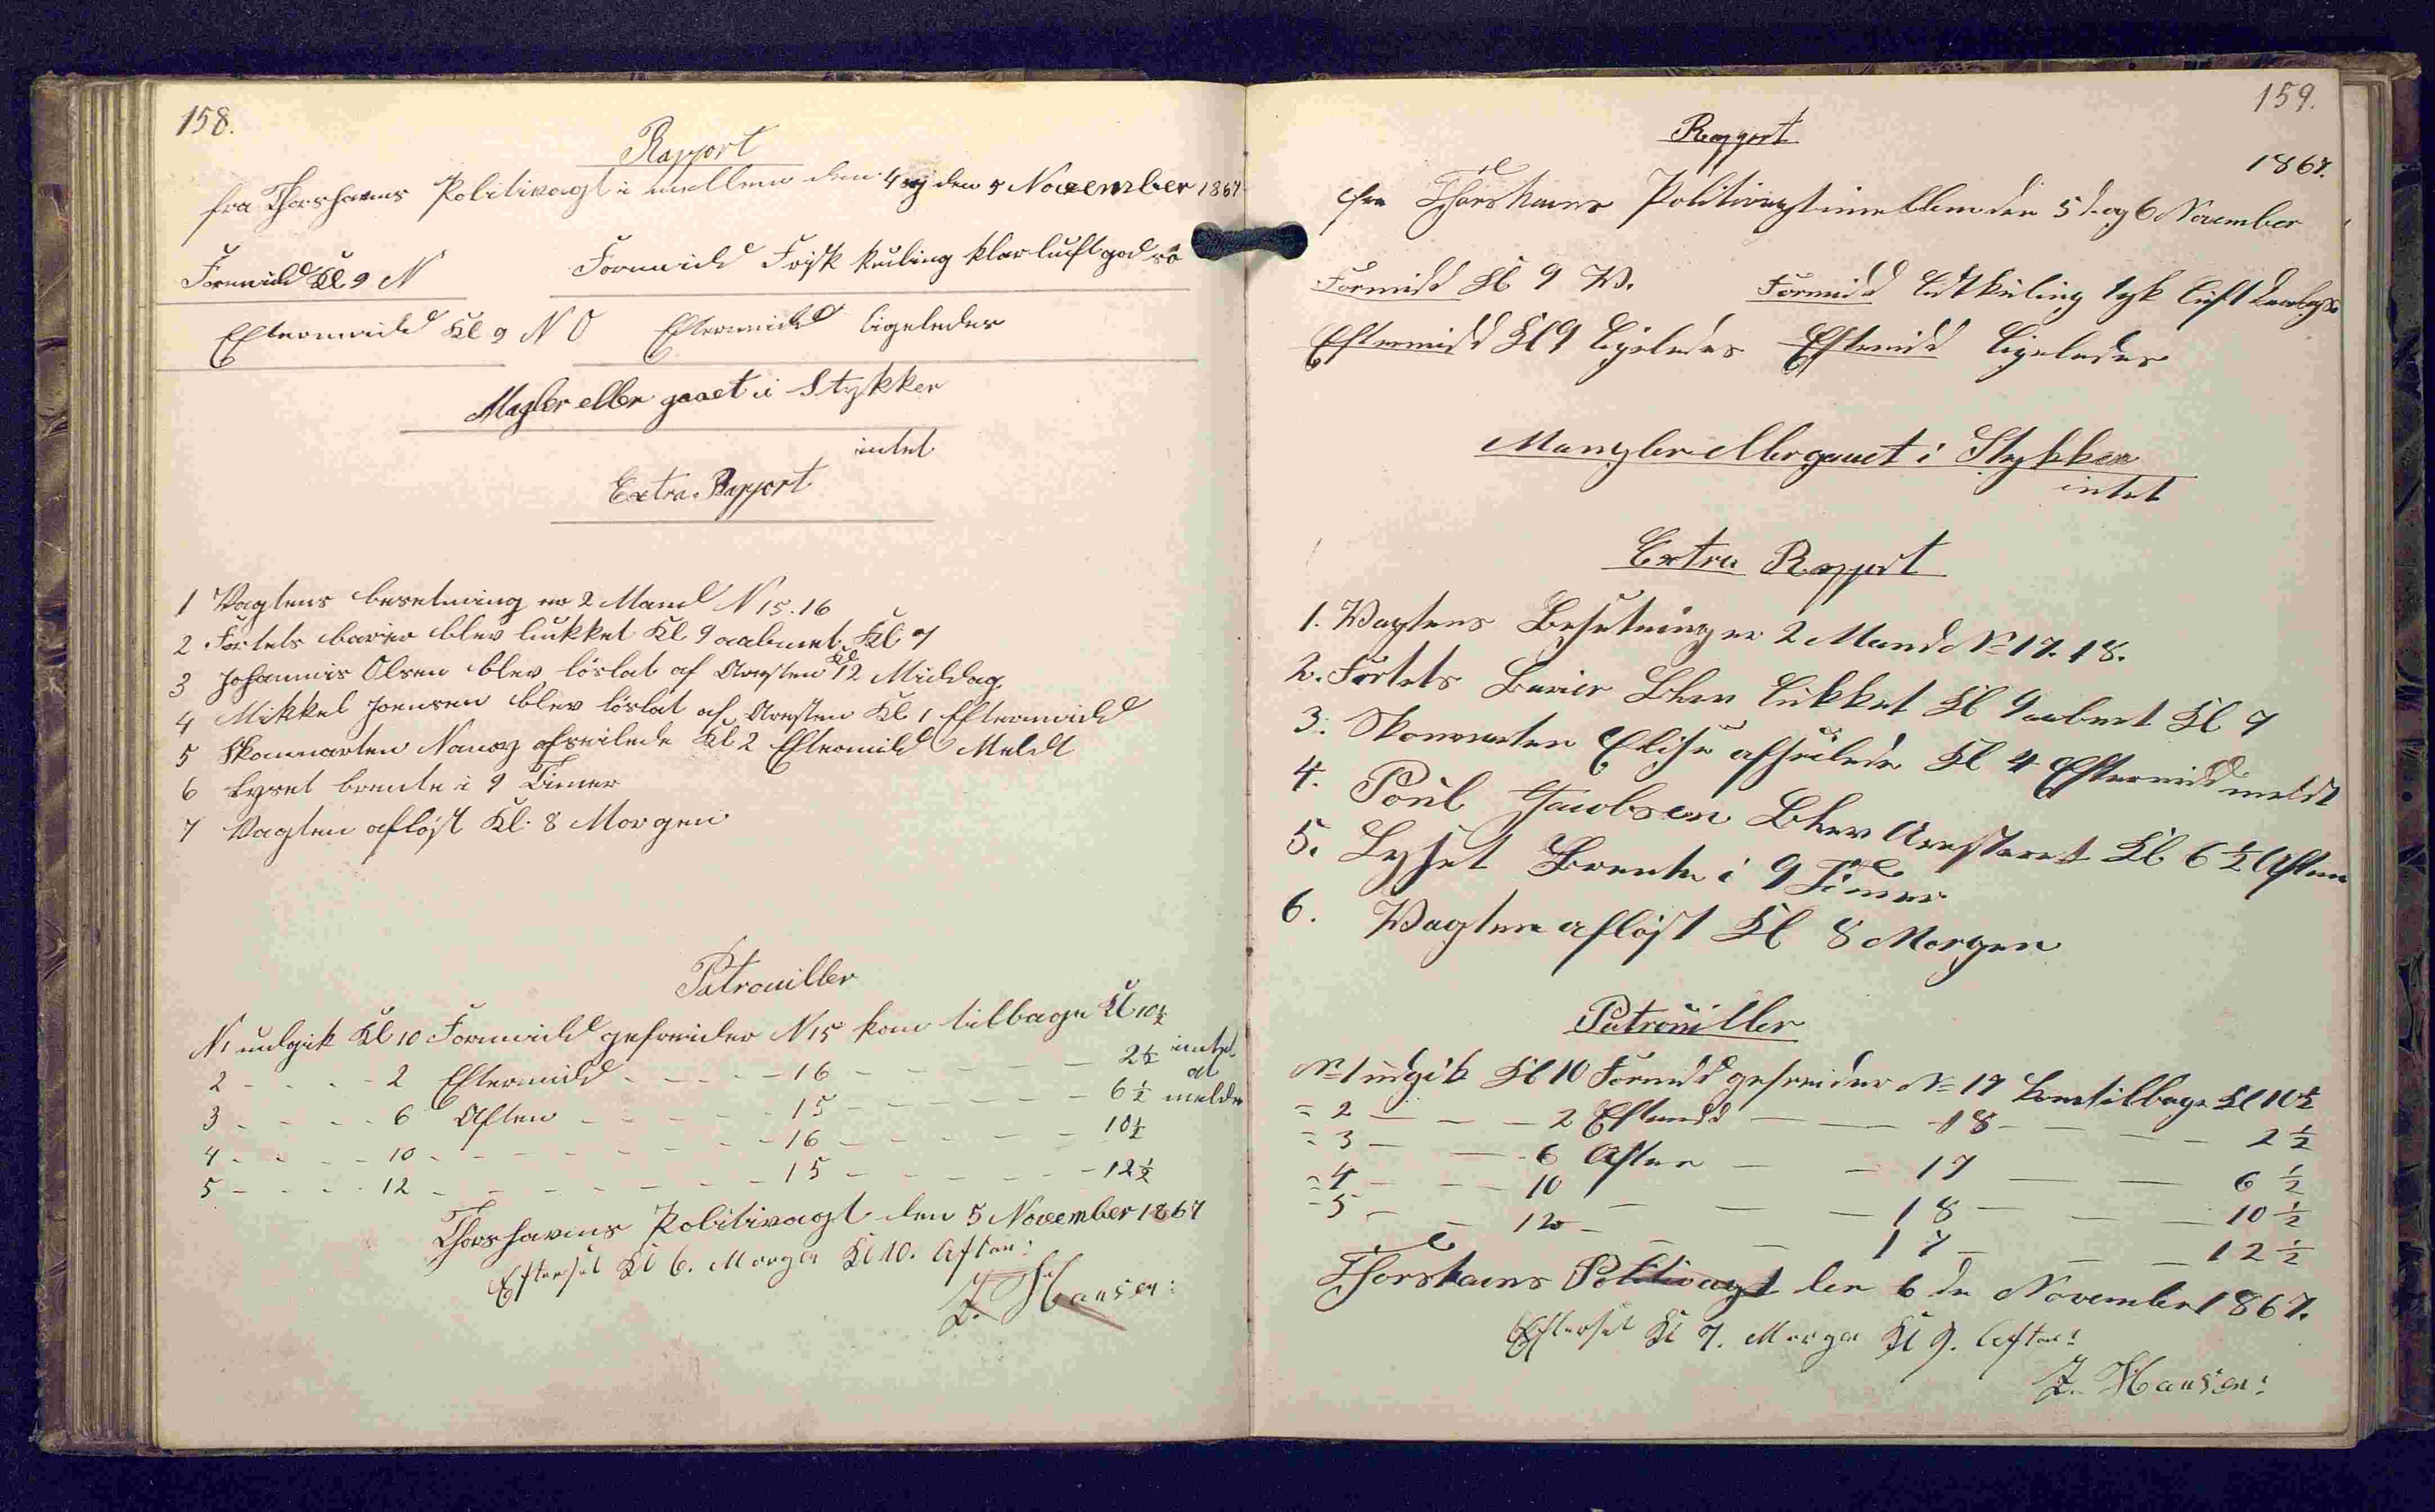 158.
Rapport
fra Thorshavns Politivagt i mellem den 4 og den 5 November 1867
Formidd Kl 9 N Formidd Frisk kuling klar luft god sö
Eftermidd Kl 9 N O Eftermidd ligeledes
Magler eller gaaet i Stykker
intet
Extra Rapport
1 Vagtens besetning er 2 Mand N 15. 16
2 Fortets barier blev lukket Kl 9 aabnet Kl 7
3 Johannis Olsen blev löslat af Aresten Kl 12 Middag
4 Mikkel Joensen blev löslat af Aresten Kl 1 Eftermidd
5 Skonnarten Nancy afseilede Kl 2 Eftermidd Meldt
6 Lyset brente i 9 Timer
7 Vagten aflöst Kl. 8 Morgen
Patrouiller
N 1 undgik Kl 10 Formidd gefreider N 15 kom tilbage Kl 10½
2 - - - - 2 Eftermidd - - - - 16 - - - - - 2½ intet
3 - - - - 6 Aften - - - - 15 - - - - - 6½ at melde
4 - - - - 10 - - - - - - 16 - - - - - 10½
5 - - - - 12 - - - - - - 15 - - - - - 12½
Thorshavns Politivagt den 5 November 1867
Efterset Kl 6. Morgen Kl 10. Aften:
Z. Hansen:
159.
Rapport
1867.
fra Thorshavns Politivagt imellem den 5 d. og 6 November
Formidd Kl 9 W. Formidd lidt kuling tyk luft
Eftermidd Kl 9 ligeledes Eftermidd ligeledes
Mangler eller gaaet i Stykker
intet
Extra Rapport
1. Vagtens Besetning er 2 Mand No 17. 18.
2. Fortets Barier Blev lukket Kl 9 aabnet Kl 7
3. Skonnerten Elise afseilede Kl 4 Eftermidd meldt
4. Poul Jacobsen Blev Aresteret Kl 6½ Aften
5. Lyset Brente i 9 Timer
6. Vagten aflöst Kl 8 Morgen
Patrouiller
No 1 udgik Kl 10 Formidd gefreider No 17 kom tilbage Kl 10½
= 2 — — — 2 Eftermidd — — 18 — — — 2½
= 3 — — 6 Aften — — 17 — — 6½
= 4 — — — 10 — — — 18 — — — 10½
= 5 — — 12 — — — 17 — — — 12½
Thorshavns Politivagt den 6 de November 1867.
Efterset Kl 7. Morgen Kl 9. Aften:
Z. Hansen: